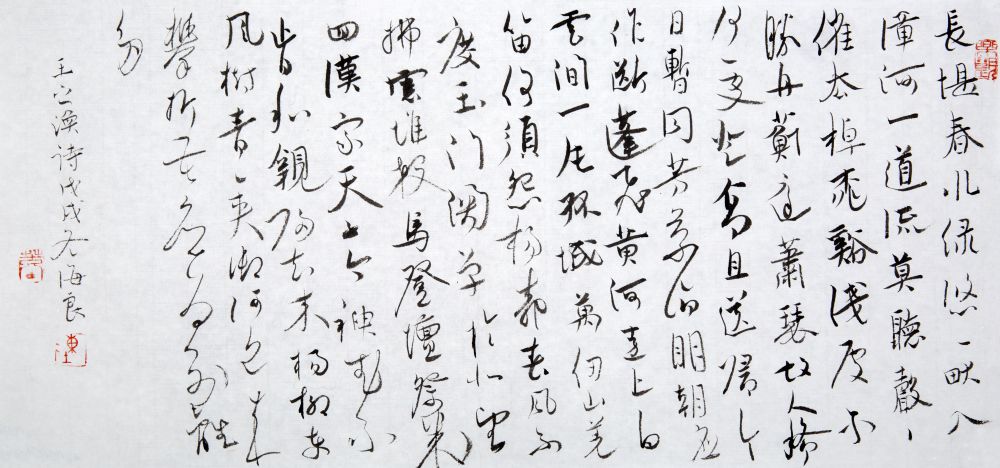 長堤春水绿悠〻畎入
漳河一道流莫聽聲〻
催去棹桃谿浅處不
勝舟薊庭蕭瑟故人稀
何處登高且送歸今
日暫同芳菊酒明朝應
作断蓬飛黄河遠上白
雲间一片孤城萬仞山羌
笛何須怨杨柳春风不
度玉门関单于北望
拂雲堆殺馬登壇祭幾
回漢家天子今神武不
肯和親歸去来杨柳东
风樹青〻夹御河近来
攀折苦應为别離
多
王之渙詩戊戌冬海良